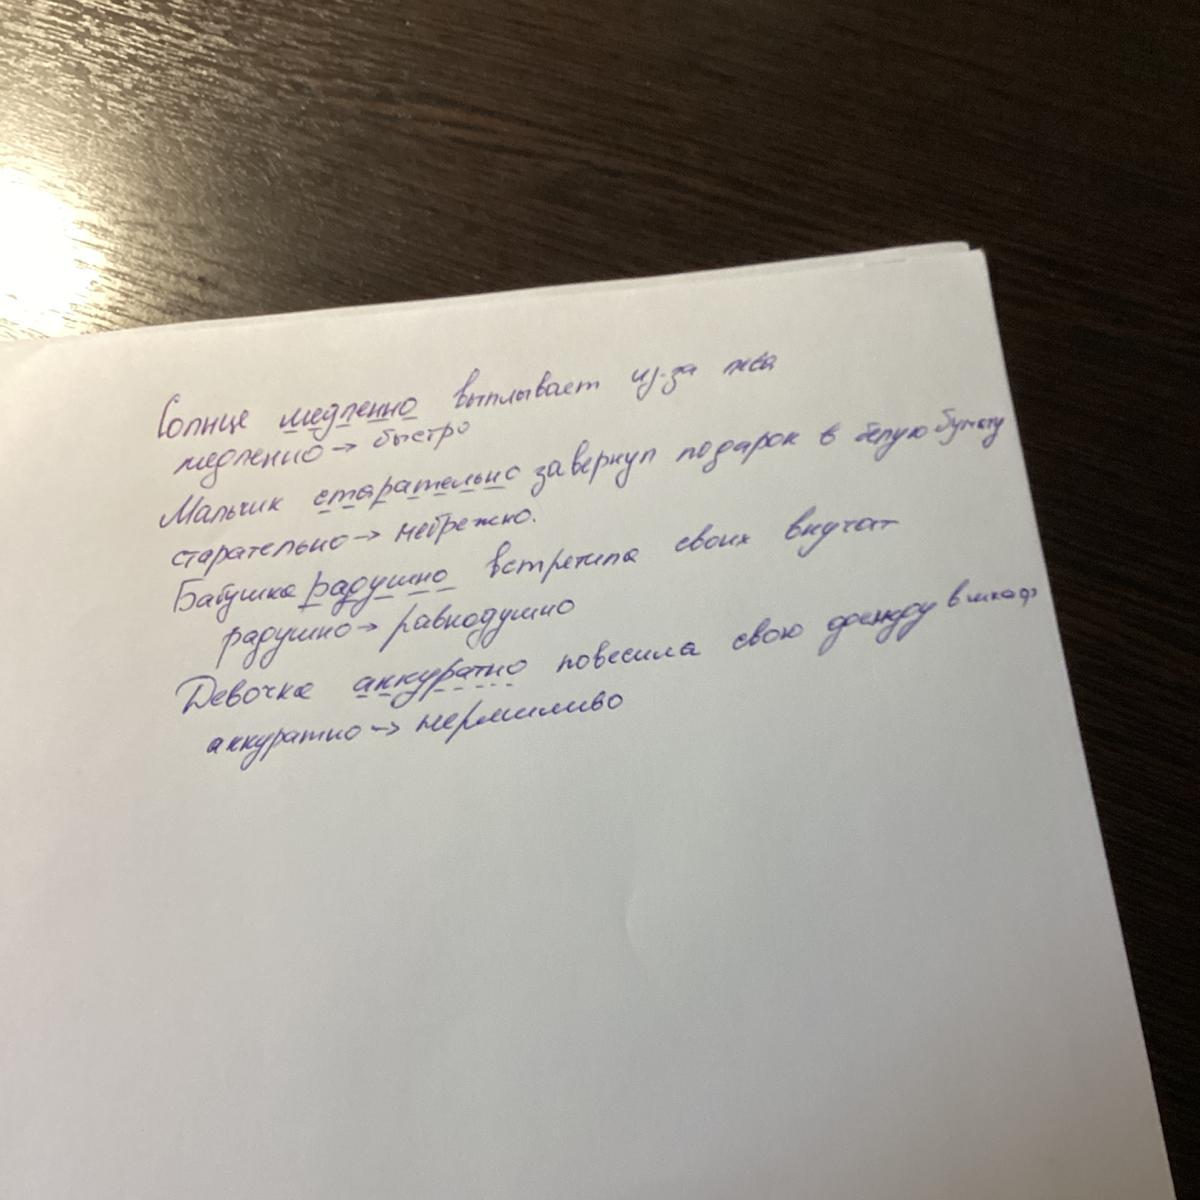 Солнце медленно выплывает из-за леса
медленно → быстро
Мальчик старательно завернул подарок в белую бумагу
старательно → небрежно.
Бабушка радушно встретила своих внучат
радушно → равнодушно
Девочка аккуратно повесила свою одежду в шкаф
аккуратно → неряшливо